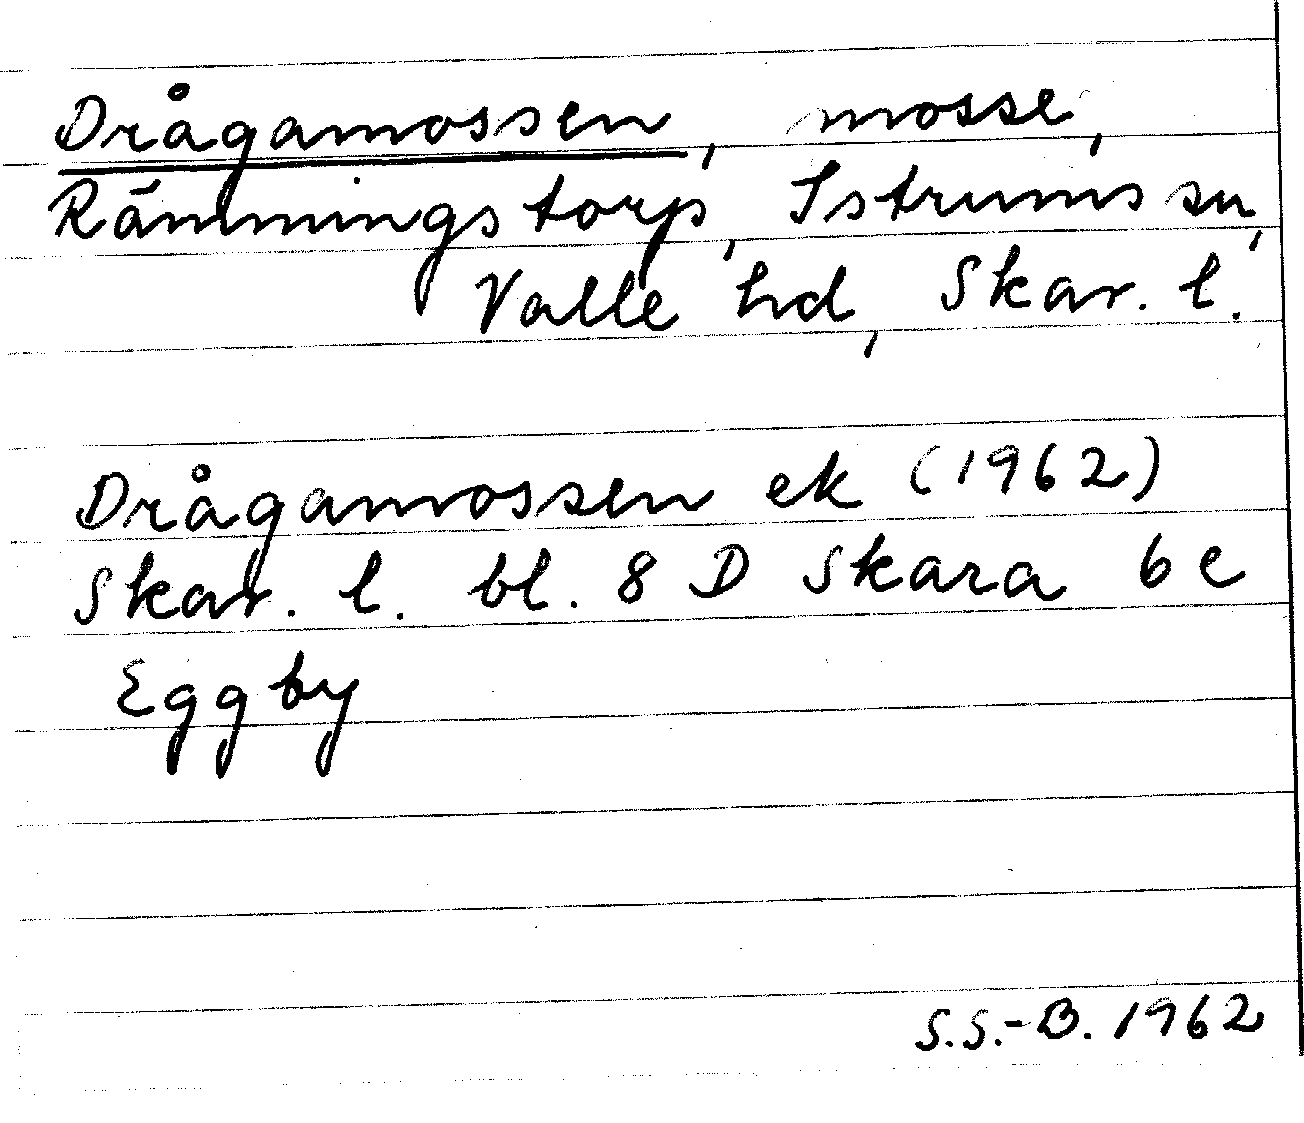 Drågamossen, mosse,
Rämmingstorp, Istrums sn,
Valle hd, Skar. l.
Drågamossen ek (1962)
Skar. l. bl. 8 D Skara 6 e
Eggby
S.S.-B. 1962